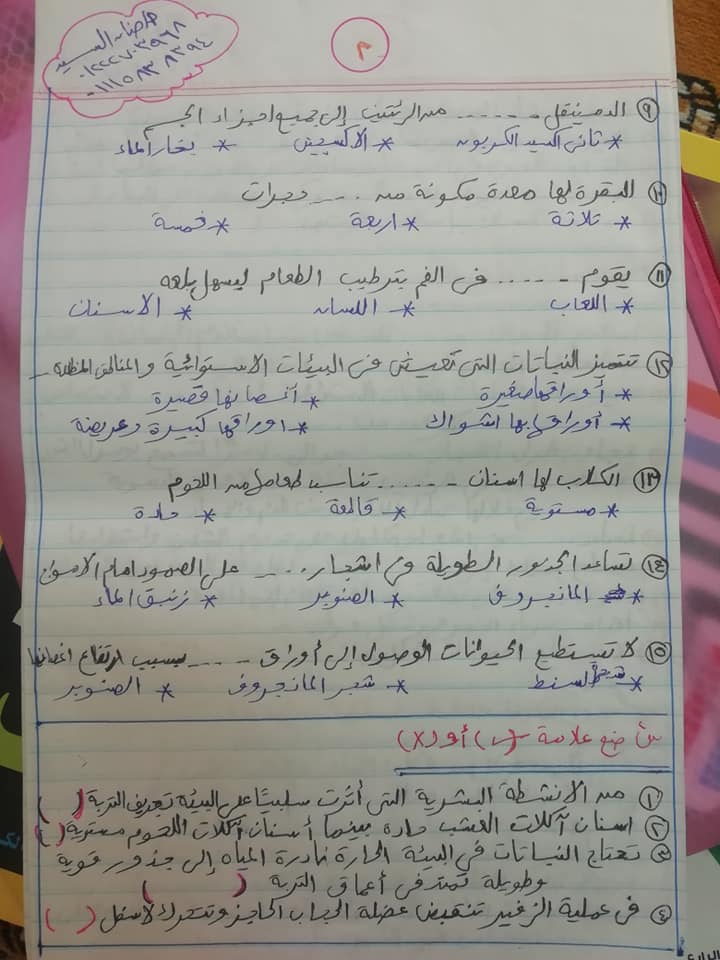 ٣
هاصناء السيد
٠١٢٢٢٧٠٣٩٦٨
٠١١١٥٨٣٨٣٩٤
٩ الدم ينقل ..... من الرئتين إلى جميع اجزاء الجسم
* ثانى اكسيد الكربون * الاكسجين * بخار الماء
١٠ البقرة لها معدة مكونة من .... حجرات
* ثلاثة * اربعة * خمسة
١١ يقوم ..... فى الفم بترطيب الطعام ليسهل بلعه
* اللعاب * اللسان * الاسنان
١٢ تتميز النباتات التى تعيش فى البيئات الاستوائية والمناطق المظللة ـ
* أوراقها صغيرة * أغصانها قصيرة
* أوراقها بها اشواك * اوراقها كبيرة وعريضة
١٣ الكلاب لها اسنان ...... تناسب طعامها من اللحوم
* مستوية * قالعة * حادة
١٤ تساعد الجذور الطويلة فى اشجار .... على الصمود امام الامواج
* المانجروف * الصنوبر * زنبق الماء
١٥ لا تستطيع الحيوانات الوصول إلى أوراق ..... بسبب ارتفاع اغصانها
* شجر السنط * شجر المانجروف * الصنوبر
س٢ ضع علامة (✓) أو (X)
١ من الانشطة البشرية التى أثرت سلبيًا على البيئة تجريف التربة ( )
٢ اسنان آكلات العشب حادة بينما أسنان آكلات اللحوم مستوية ( )
٣ تحتاج النباتات فى البيئة الحارة نادرة المياه إلى جذور قوية
وطويلة تمتد فى أعماق التربة ( )
٤ فى عملية الزفير تنقبض عضلة الحجاب الحاجز وتتحرك لأسفل ( )